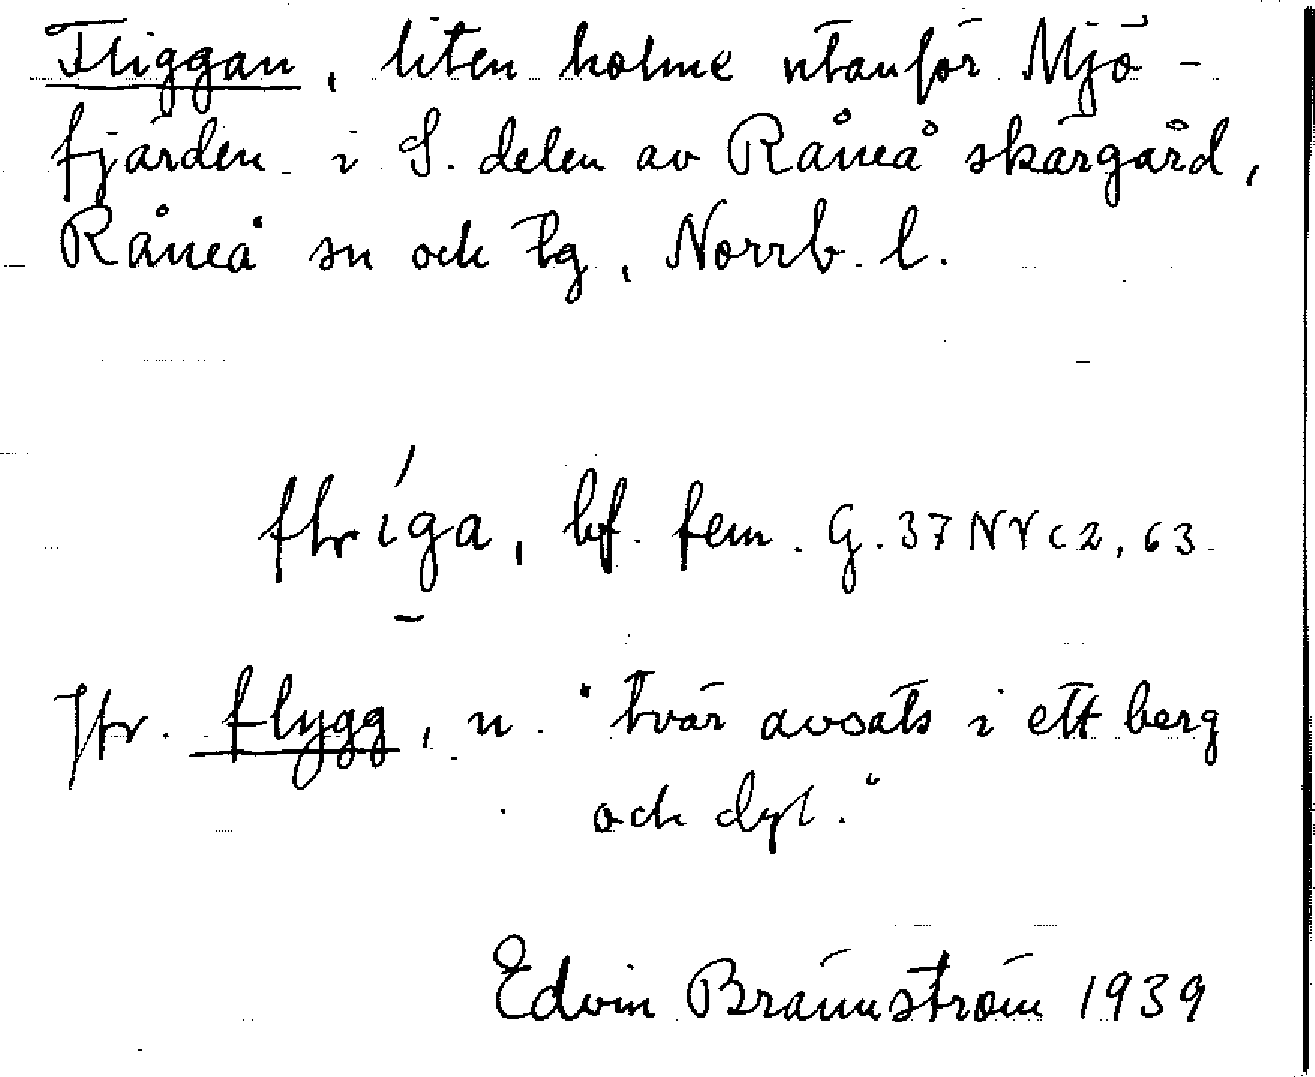 Fliggan, liten holme utanför Mjö-
fjärden i S. delen av Råneå skärgård,
Råneå sn och tg, Norrb. l.
bf. fem. G. 37 NV c 2, 63
Jfr. flygg, n. "tvär avsats i ett berg
och dyl."
Edvin Brännström 1939